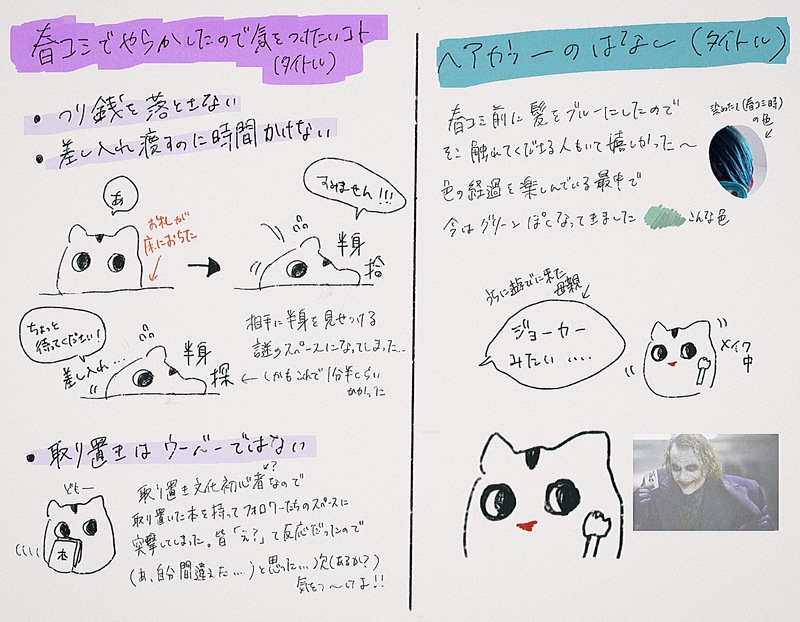 春コミでやらかしたので気をつけたいコト
(タイトル)
• つり銭を落とさない
• 差し入れ渡すのに時間かけない
あ
お札が
床におちた
すみません!!!
半身
拾
ちょっと
待ってください!
差し入れ...
半身
探
相手に半身を見せつける
謎のスペースになってしまった...
← しかもこれで1分半くらい
かかった
• 取り置きはウーバーではない
どもー
本
取り置き文化初心者なので
?
取り置いた本を持ってフォロワーたちのスペースに
突撃してしまった。皆「え?」て反応だったので
(あ、自分間違えた....)と思った...次(あるか?)
気をつ〜けよ!!
ヘアカラーのはなし (タイトル)
春コミ前に髪をブルーにしたので
そこ触れてくださる人もいて嬉しかった〜
色の経過を楽しんでいる最中で
今はグリーンぽくなってきました
こんな色
染めたし(春コミ時)
の色
うちに遊びに来た
母親
ジョーカー
みたい ....
メイク
中